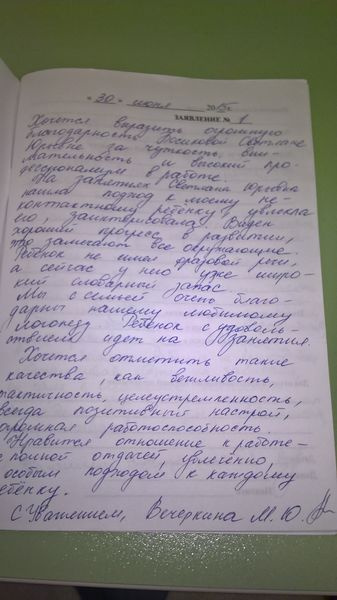 " 30 " июня 2015г.
ЗАЯВЛЕНИЕ № 1
Хочется выразить огромную
благодарность Светлане
Юрьевне за чуткость, вни-
мательность и высокий про-
фессионализм в работе.
На занятиях Светлана Юрьевна
нашла подход к моему не-
контактному ребёнку, увлекла
его, заинтересовала. Виден
хороший прогресс в развитии,
это замечают все окружающие.
Ребёнок не имел фразовой речи,
а сейчас у него уже широ-
кий словарный запас
Мы с семьёй очень благо-
дарны нашему любимому
логопеду. Ребёнок с удоволь-
ствием идет на занятия.
Хочется отметить такие
качества, как вежливость,
тактичность, целеустремленность,
всегда позитивный настрой,
огромная работоспособность.
Нравится отношение к работе-
с полной отдачей, увлечённо,
особым подходом к каждому
ребёнку.
С Уважением, Вечеркина М. Ю.